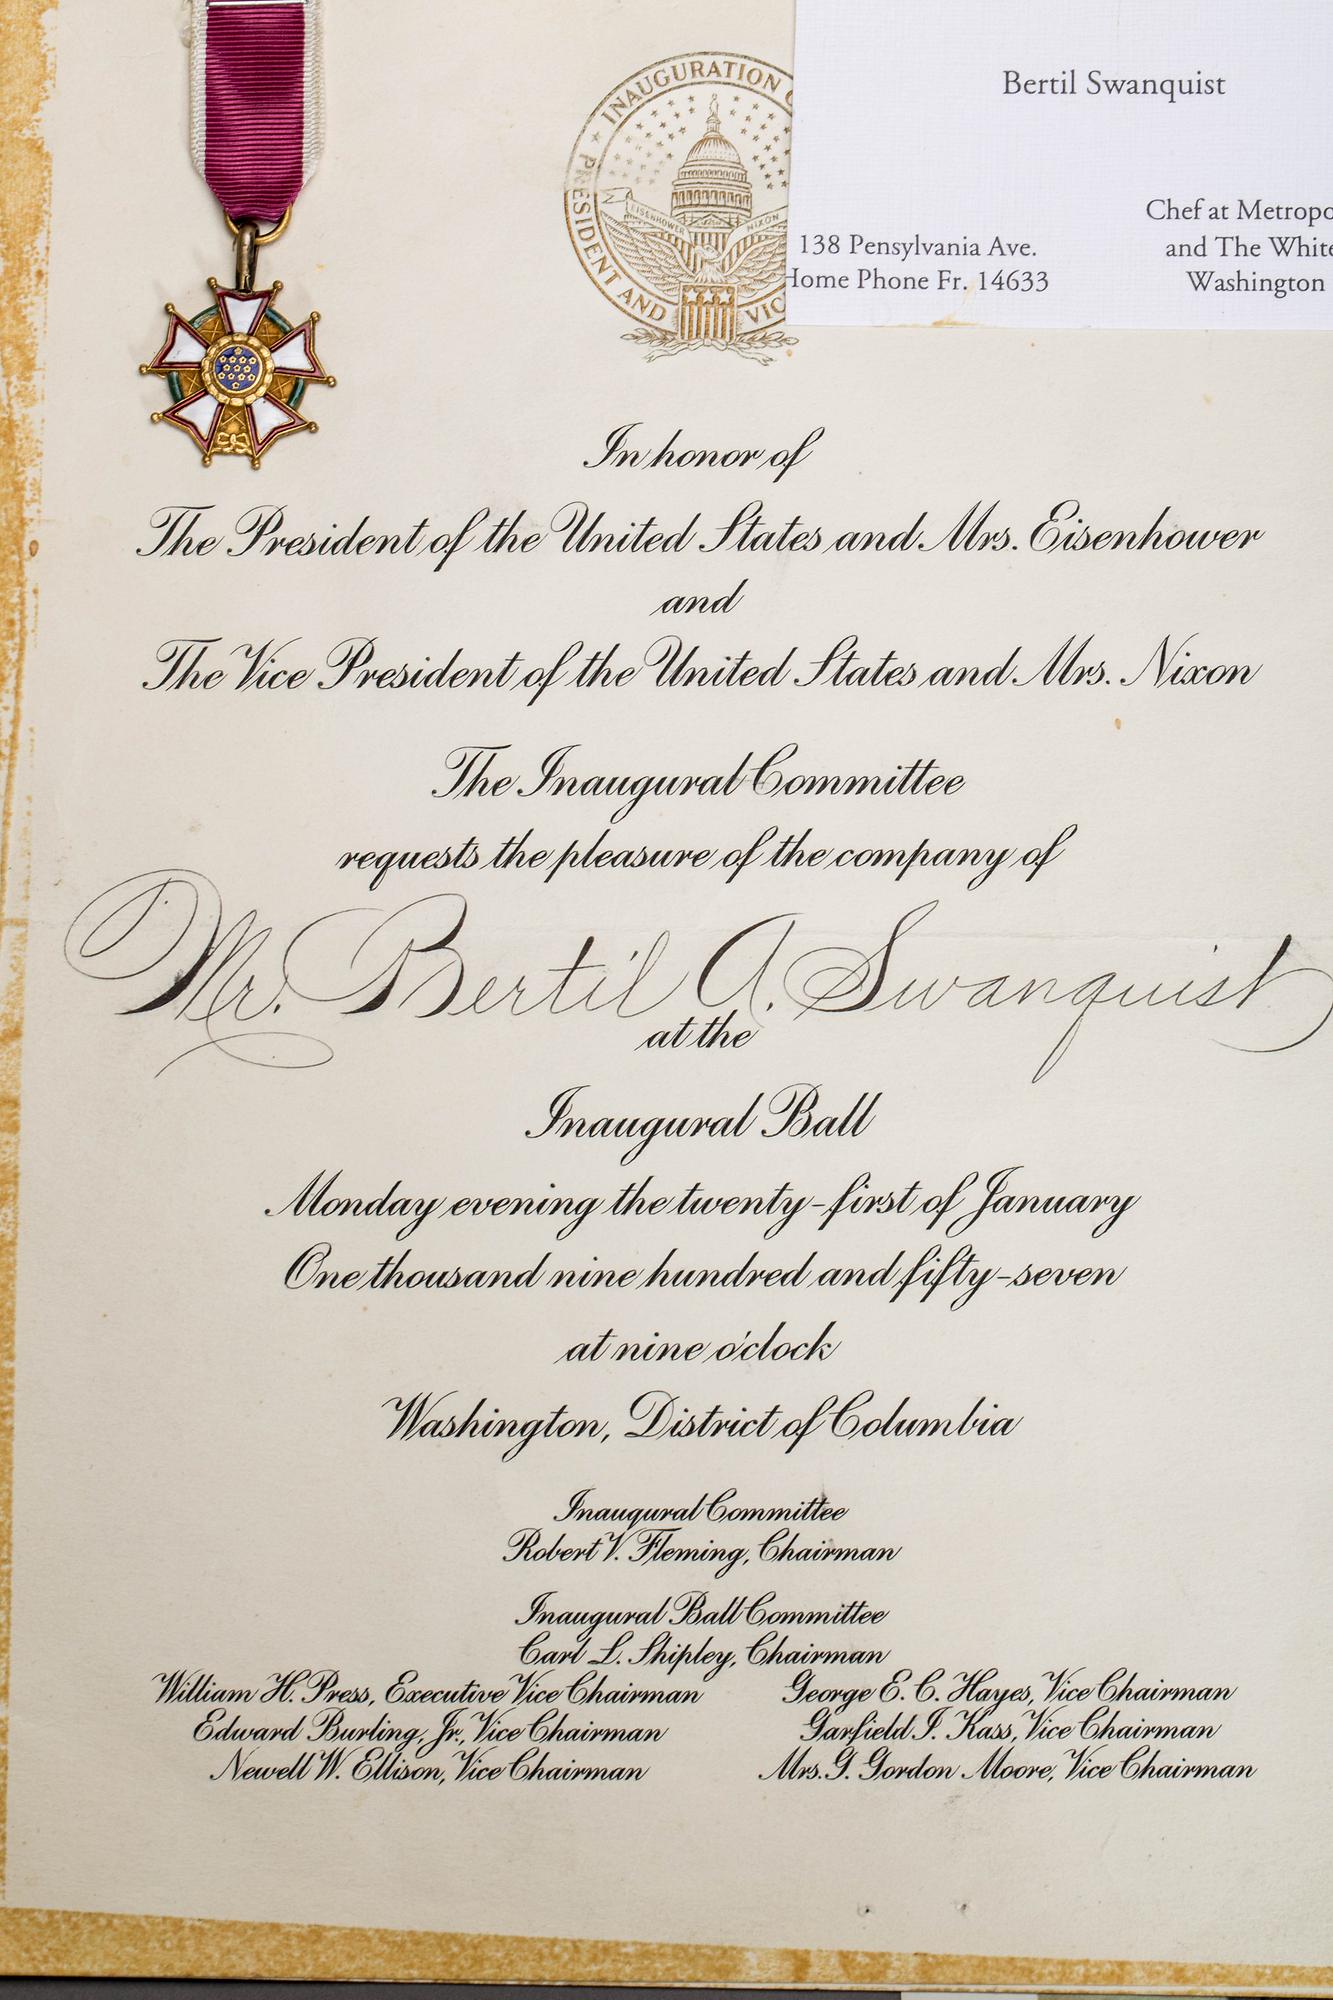 INAUGURATION
PRESIDENT AND
EISENHOWER
NIXON
Bertil Swanquist
Chef at
138 Pensylvania Ave.
and The
Home Phone Fr. 14633
Washington
In honor of
The President of the United States and Mrs. Eisenhower
and
The Vice President of the United States and Mrs. Nixon
The Inaugural Committee
requests the pleasure of the company of
Mr. Bertil A. Swanquist
at the
Inaugural Ball
Monday evening the twenty-first of January
One thousand nine hundred and fifty-seven
at nine o'clock
Washington, District of Columbia
Inaugural Committee
Robert V. Fleming, Chairman
Inaugural Ball Committee
Carl L. Shipley, Chairman
William H. Press, Executive Vice Chairman
George E. C. Hayes, Vice Chairman
Edward Burling, Jr., Vice Chairman
Garfield I. Kass, Vice Chairman
Newell W. Ellison, Vice Chairman
Mrs. G. Gordon Moore, Vice Chairman